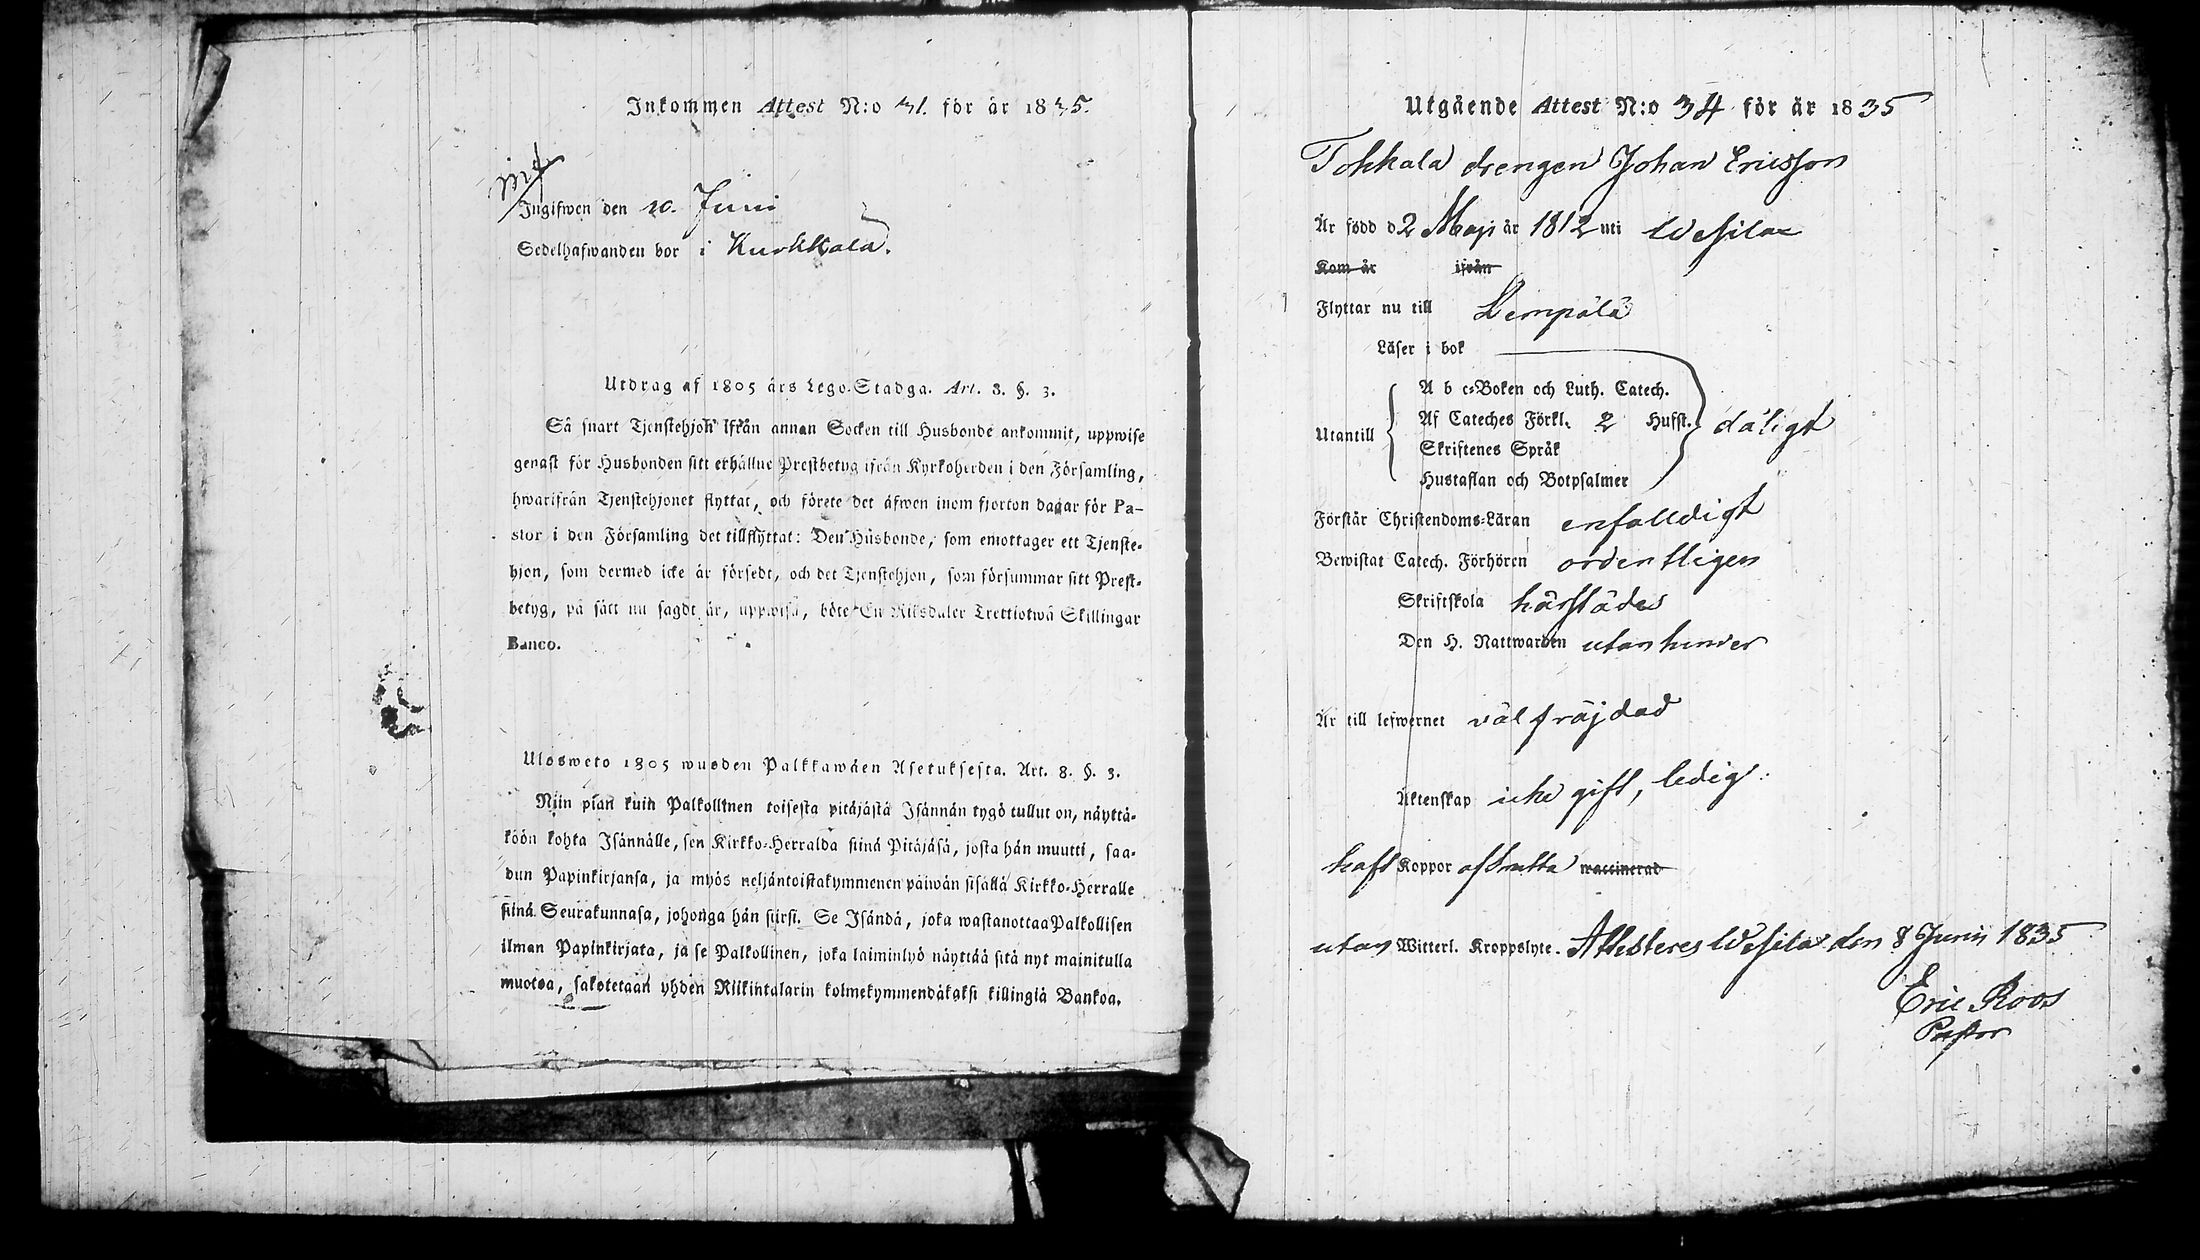 Inkommen Attest N:o 31. för år 1835.
Ingifwen den 10. Juni
Sedelhafwanden bor i Kurkkala.
Utdrag af 1805 års Lego-Stadga. Art. 8. §. 3.
Så snart Tjenstehjon ifrån annan Socken till Husbonde ankommit, uppwise
genast för Husbonden sitt erhållne Prestbetyg ifrån Kyrkoherden i den Församling,
hwarifrån Tjenstehjonet flyttat, och förete det äfwen inom fjorton dagar för Pa-
stor i den Församling det tillflyttat: Den Husbonde, som emottager ett Tjenste-
hjon, som dermed icke är försedt, och det Tjenstehjon, som försummar sitt Prest-
betyg, på sätt nu sagdt är, uppwisa, böte En Riksdaler Trettiotwå Skillingar
Banco.
Ulosweto 1805 wuoden Palkkawäen Asetuksesta. Art. 8. §. 3.
Niin pian kuin Palkollinen toisesta pitäjästä Isännän tygö tullut on, näyttä-
köön kohta Isännälle, sen Kirkko-Herralda siinä Pitäjäsä, josta hän muutti, saa-
dun Papinkirjansa, ja myös neljäntoistakymmenen päiwän sisällä Kirkko-Herralle
siinä Seurakunnasa, johonga hän siirsi. Se Isändä, joka wastanottaa Palkollisen
ilman Papinkirjata, ja se Palkollinen, joka laiminlyö näyttää sitä nyt mainitulla
muotoa, sakotetaan yhden Riikintalarin kolmekymmendäkaksi killingiä Bankoa.
Utgående Attest N:o 34 för år 1835
Tokkala drengen Johan Ericsson
Är född d 2 Maji år 1812 uti Wesilax
Kom år ifrån
Flyttar nu till Lempälä
Läser i bok
Utantill
A b c-Boken och Luth. Catech.
Af Cateches Förkl. 2 Hufst. dåligt
Skriftenes Språk
Hustaflan och Botpsalmer
Förstår Christendoms-Läran enfalldigt
Bewistat Catech. Förhören ordentligen
Skriftskola härstädes
Den H. Nattwarden utan hinder
Är till lefwernet välfräjdad
Äktenskap icke gift, ledig.
haft Koppor waccinerad
utan Witterl. Kroppslyte. Attesteres Wesilax den 8 Junii 1835
Eric Roos
Pastor